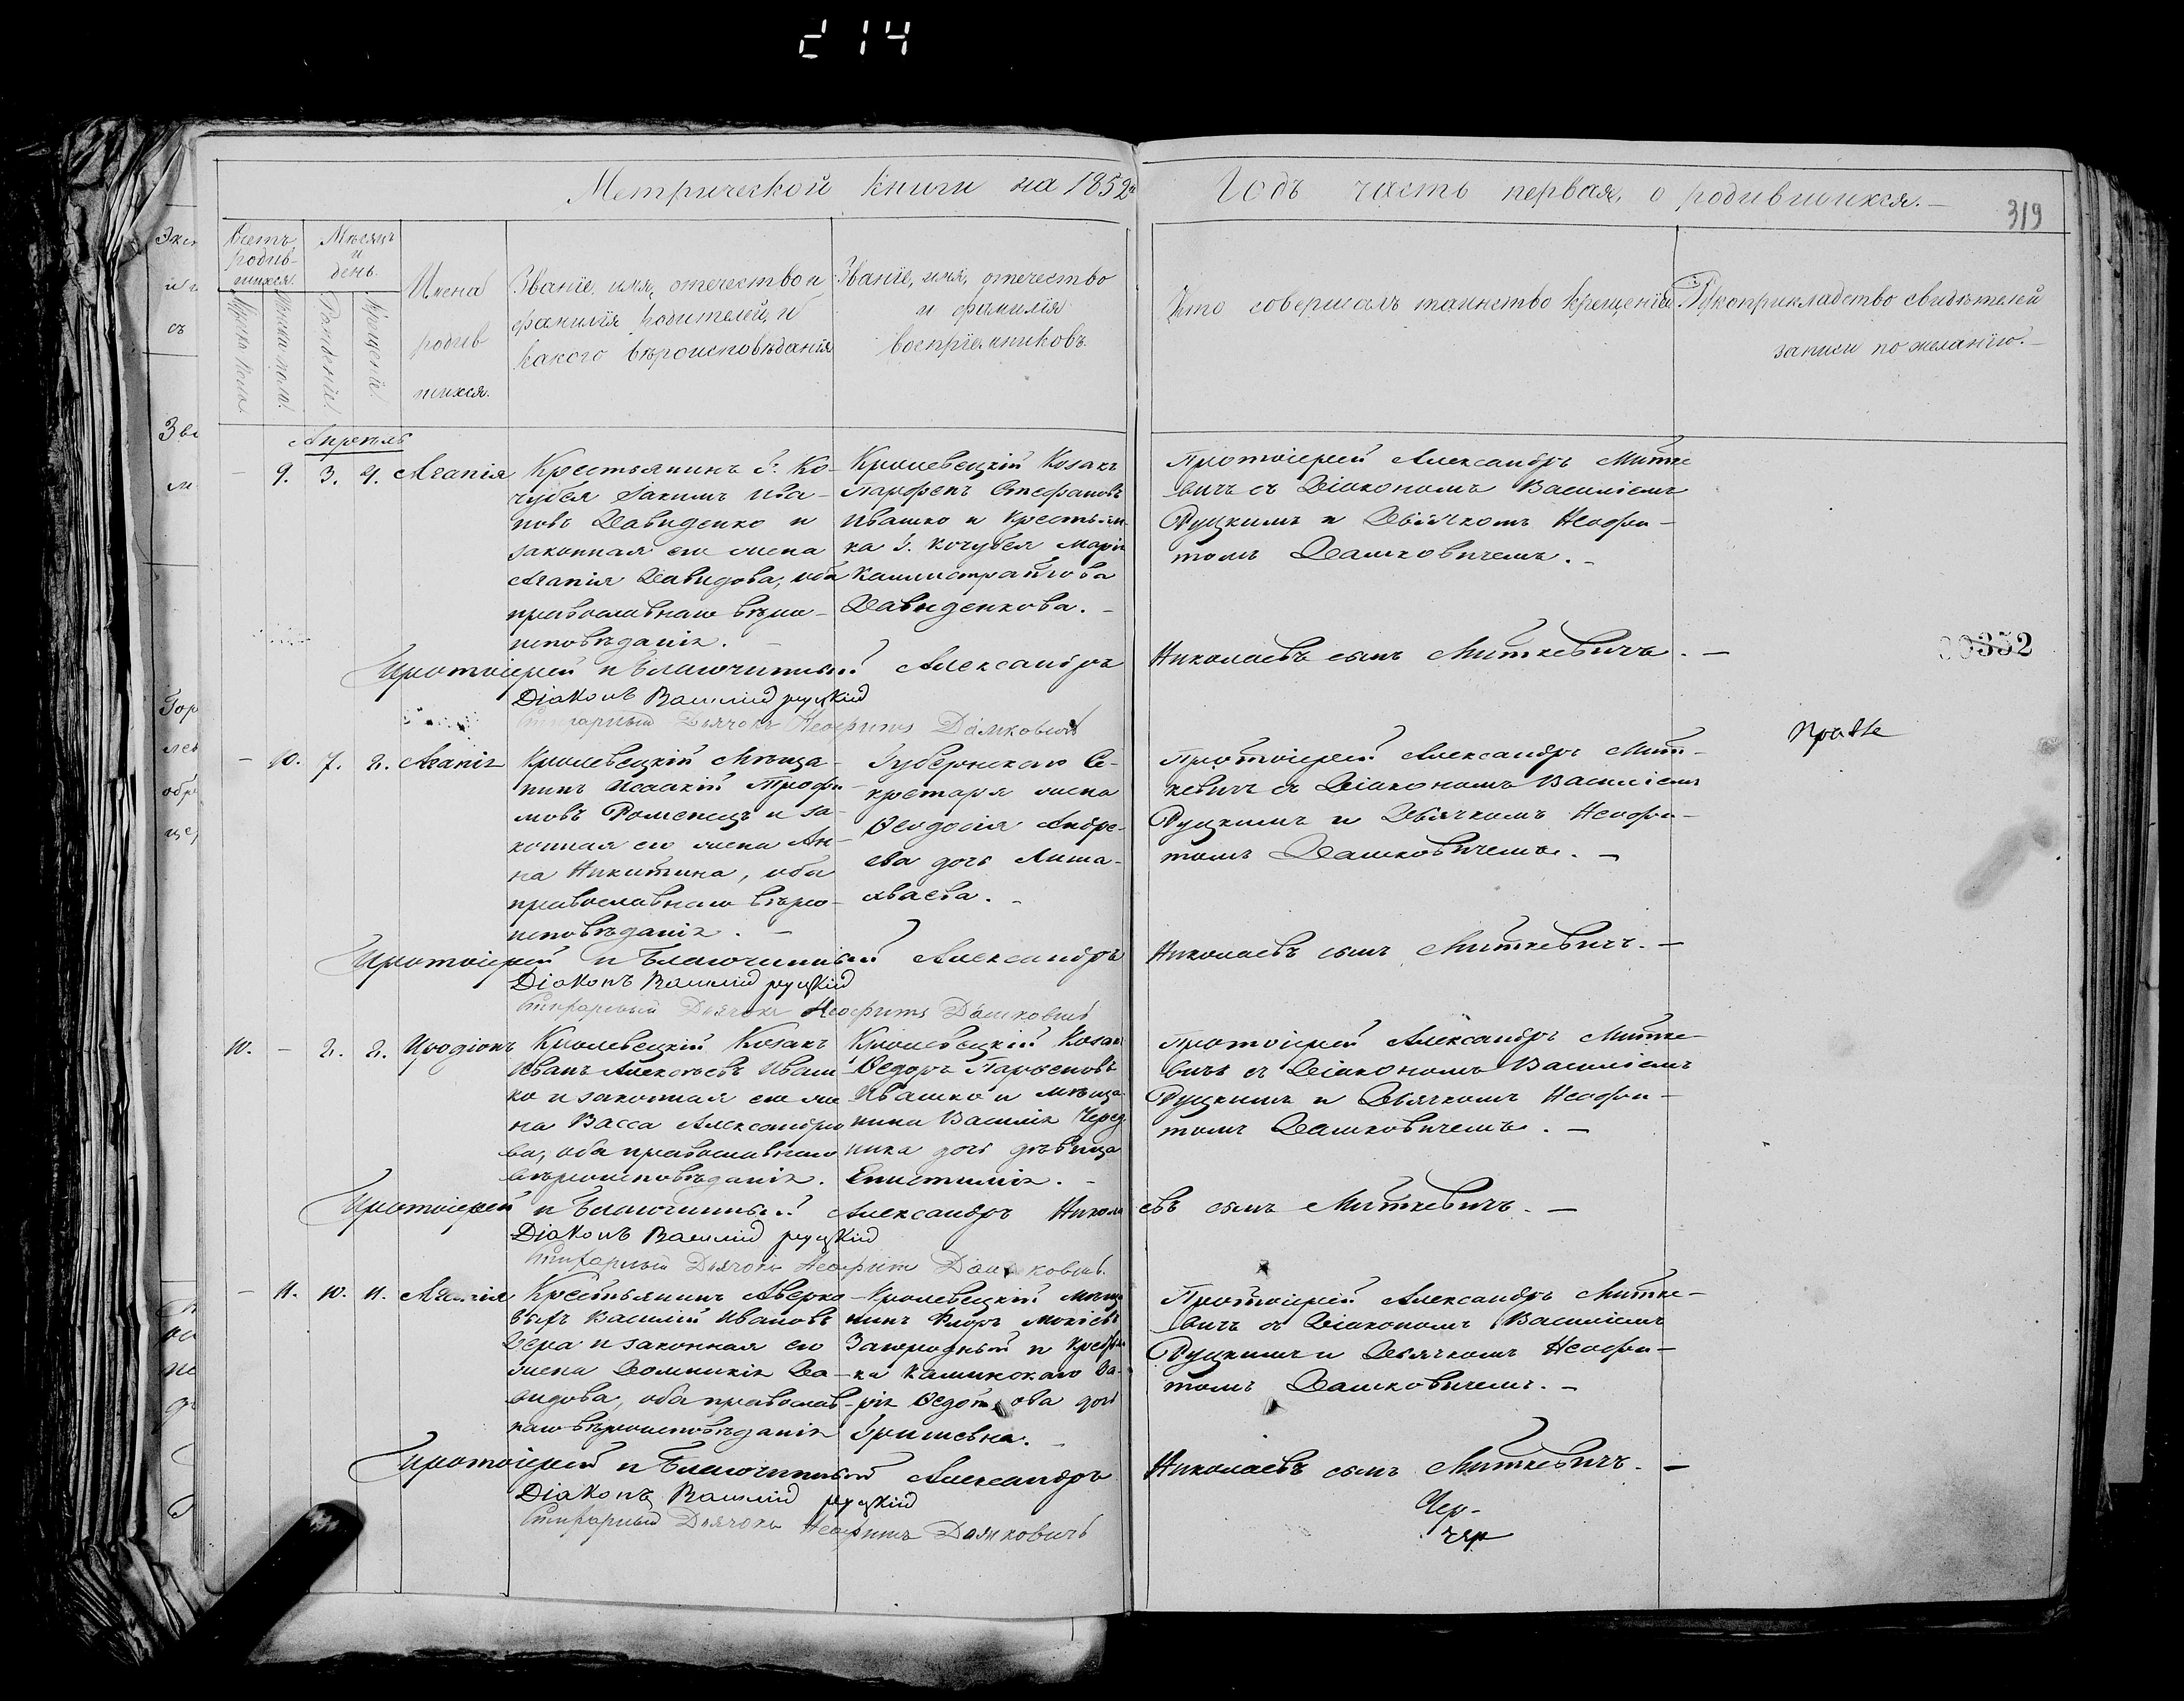 214
Метрической книги на 1852й
Годъ часть первая, о родившихся.
319
Счетъ родив-шихся.
Мѣсяцъ и день.
Имена родив шихся.
Званіе, имя, отечество и фамилія родителей, и какого вѣроисповѣданія
Званіе, имя, отечество и фамилія воспріемниковъ.
Кто совершалъ таинство крещенія
Рукоприкладство свидѣтелей записи по желанію.
Мужеска пола.
Женска пола.
Рожденіе.
Крещеніе.
Апрель
9. 3. 4. Агапія
Крестьянинъ Г. Ко-
чубея Іакимъ Ива-
новъ Давиденко и
законная его жена
Агапія Давидова, оба
православнаго вѣро-
исповѣданія.
Кролевецкій Козакъ
Парфенъ Стефановъ
Ивашко и Крестьян-
ка Г. Кочубея Марія
Каллистратова
Давиденкова.
Протоіерей Александръ Митке
вичъ съ Діакономъ Василіемъ
Руцкимъ и Дьячкомъ Неофи-
томъ Дашковичемъ.
Протоіерей и Благочинный Александръ Николаевъ сынъ Миткевичъ.
00352
Діаконъ Василій руцкій
Стихарный Дьячокъ Неофитъ Дашковичъ
10. 7. 8. Агапія
Кролевецкій Мѣща-
нинъ Исаакій Трофи-
мовъ Роменецъ и за-
конная его жена Ан-
на Никитина, оба
православнаго вѣро-
исповѣданія.
Губернскаго Се-
кретаря жена
Ѳеодосія Андре-
ева дочь Лиша-
хваева.
Протоіерей Александръ Мит-
кевичъ съ Діакономъ Василіемъ
Руцкимъ и Дьячкомъ Неофи-
томъ Дашковичемъ.
Протоіерей и Благочинный Александръ Николаевъ сынъ Миткевичъ.
Діаконъ Василій руцкій
Стихарный Дьячокъ Неофитъ Дашковичъ
10. 8. 8. Иродіонъ
Кролевецкій Козакъ
Иванъ Алексѣевъ Иваш
ко и законная его же
на Васса Александро
ва, оба православнаго
вѣроисповѣданія.
Кролевецкій Козакъ
Ѳедоръ Парѳеновъ
Ивашко и мѣща-
нина Василія Черед
ника дочь дѣвица
Епистимія.
Протоіерей Александръ Митке
вичъ съ Діакономъ Василіемъ
Руцкимъ и Дьячкомъ Неофи-
томъ Дашковичемъ.
Протоіерей и Благочинный Александръ Никола евъ сынъ Миткевичъ.
Діаконъ Василій руцкій
Стихарный Дьячокъ Неофитъ Дашковичъ.
11. 10. 11.
Крестьянинъ Аверко
выхъ Василій Ивановъ
Дера и законная его
жена Домникія Да-
видова, оба православ-
наго вѣроисповѣданія
Кролевецкій мѣща
нинъ Флоръ Мокіевъ
Загородный и Крестьян
ка Калинскаго Да-
рія Ѳедотова дочь
Гришевна.
Протоіерей Александръ Митке-
вичъ съ Діакономъ Василіемъ
Руцкимъ и Дьячкомъ Неофи-
томъ Дашковичемъ.
Протоіерей и Благочинный Александръ Николаевъ сынъ Миткевичъ.
Діаконъ Василій руцкій
Стихарный Дьячокъ Неофитъ Дашковичъ